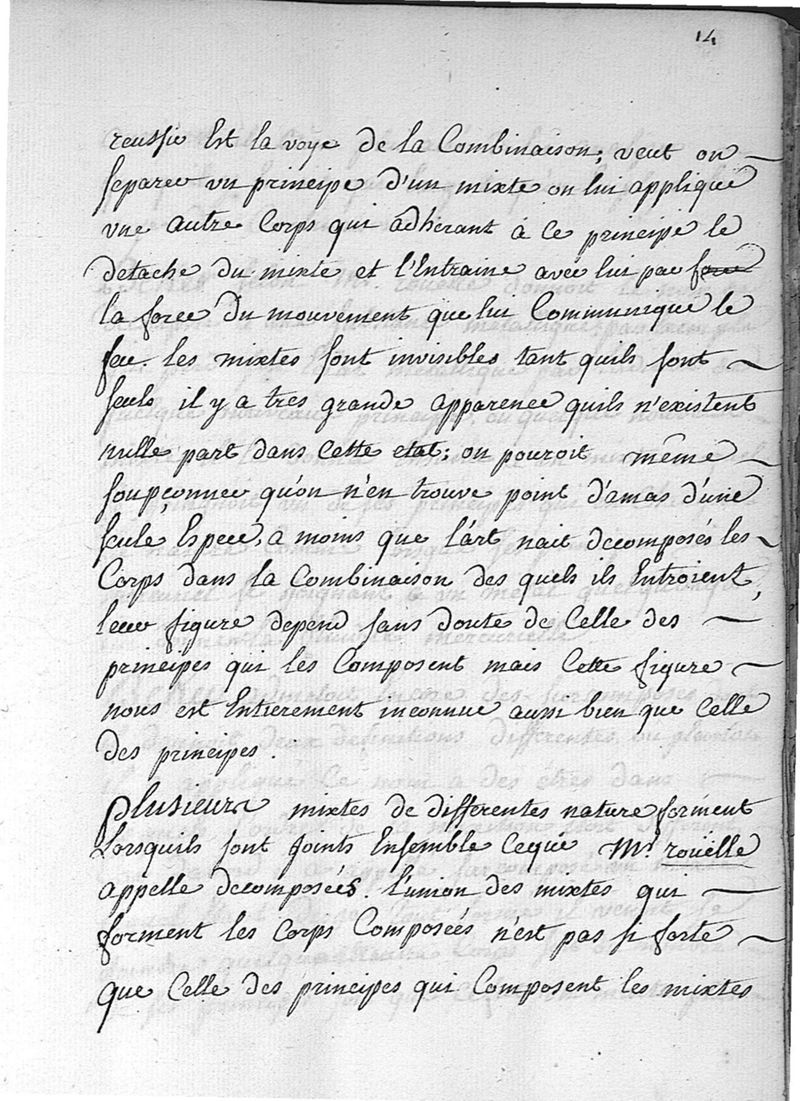 14
reussie Est la voye de la Combinaison; veut on
separer un principe d'un mixte on lui applique
une autre Corps qui adherant a ce principe le
detache du mixte et l'Entraine avec lui par force
la force du mouvement que lui Communique le
feu. les mixtes sont invisibles tant quils sont
seuls il y a tres grande apparence quils n'existent
nulle part dans Cette etat; on pouroit même
soupçonner qu'on n'en trouve point d'amas d'une
seule Espece, a moins que l'art nait decomposés les
Corps dans la Combinaison des quels ils Entroient,
leur figure depend sans doute de Celle des
principes qui les Composent mais Cette figure
nous est Entierement inconnue aussi bien que Celle
des principes.
plusieurs mixtes de differentes nature forment
Lorsquils sont joints Ensemble Ceque Mr. rouelle
appelle decomposées. l'union des mixtes qui
forment les Corps Composées n'est pas si forte
que Celle des principes qui Composent les mixtes